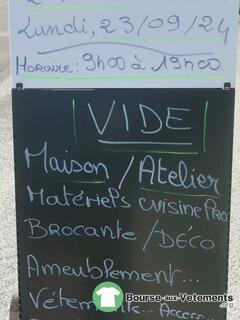 Lundi, 23/09/24
Horaire: 9h00 à 19h00
VIDE
Maison / Atelier
Matériels cuisine Pro
Brocante / Déco
Ameublement...
Vêtements... Access...
Bourse-aux-Vetements
.org